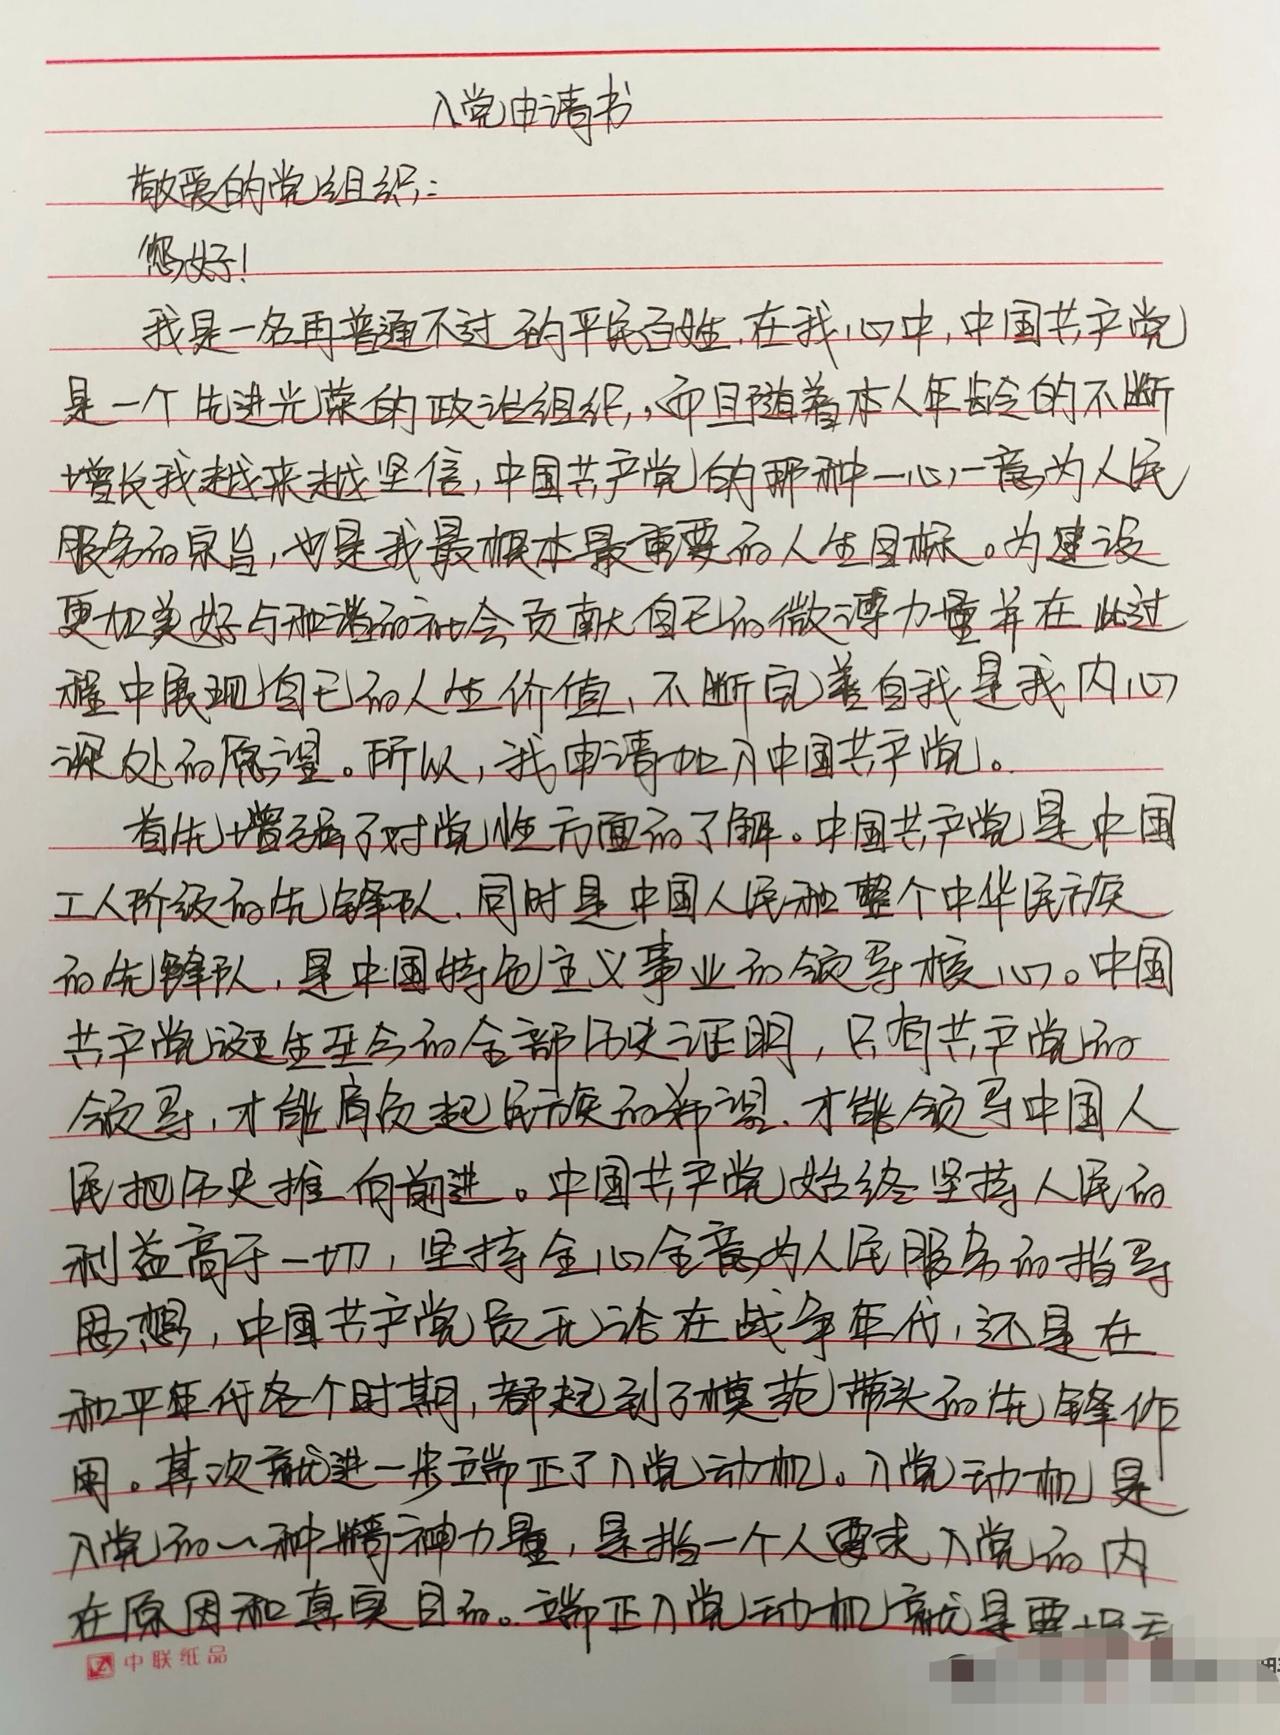 入党申请书
敬爱的党组织:
您好!
我是一名再普通不过的平民百姓.在我心中,中国共产党
是一个先进光荣的政治组织,,而且随着本人年龄的不断
增长我越来越坚信,中国共产党的那种一心一意为人民
服务的宗旨,也是我最根本最重要的人生目标。为建设
更加美好与和谐的社会贡献自己的微薄力量并在此过
程中展现自己的人生价值、不断完善自我是我内心
深处的愿望。所以,我申请加入中国共产党。
首先增强了对党性方面的了解。中国共产党是中国
工人阶级的先锋队.同时是中国人民和整个中华民族
的先锋队,是中国特色主义事业的领导核心。中国
共产党诞生至今的全部历史证明,只有共产党的
领导,才能肩负起民族的希望.才能领导中国人
民把历史推向前进。中国共产党始终坚持人民的
利益高于一切,坚持全心全意为人民服务的指导
思想,中国共产党员无论在战争年代,还是在
和平年代各个时期,都起到了模范带头的先锋作
用。其次就进一步端正了入党动机。入党动机是
入党的一种精神力量,是指一个人要求入党的内
在原因和真实目的。端正入党动机就是要
中联纸品